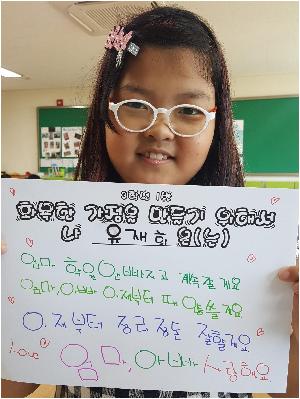 3학년 1반
화목한 가정을 만들기 위해서
나 유재희 은(는)
엄마 학원 안빠지고 계속갈게요
엄마,아빠 이제부터 떼안쓸게요
이제부터 정리정돈 잘할게요
Love 엄마, 아빠 사랑해요